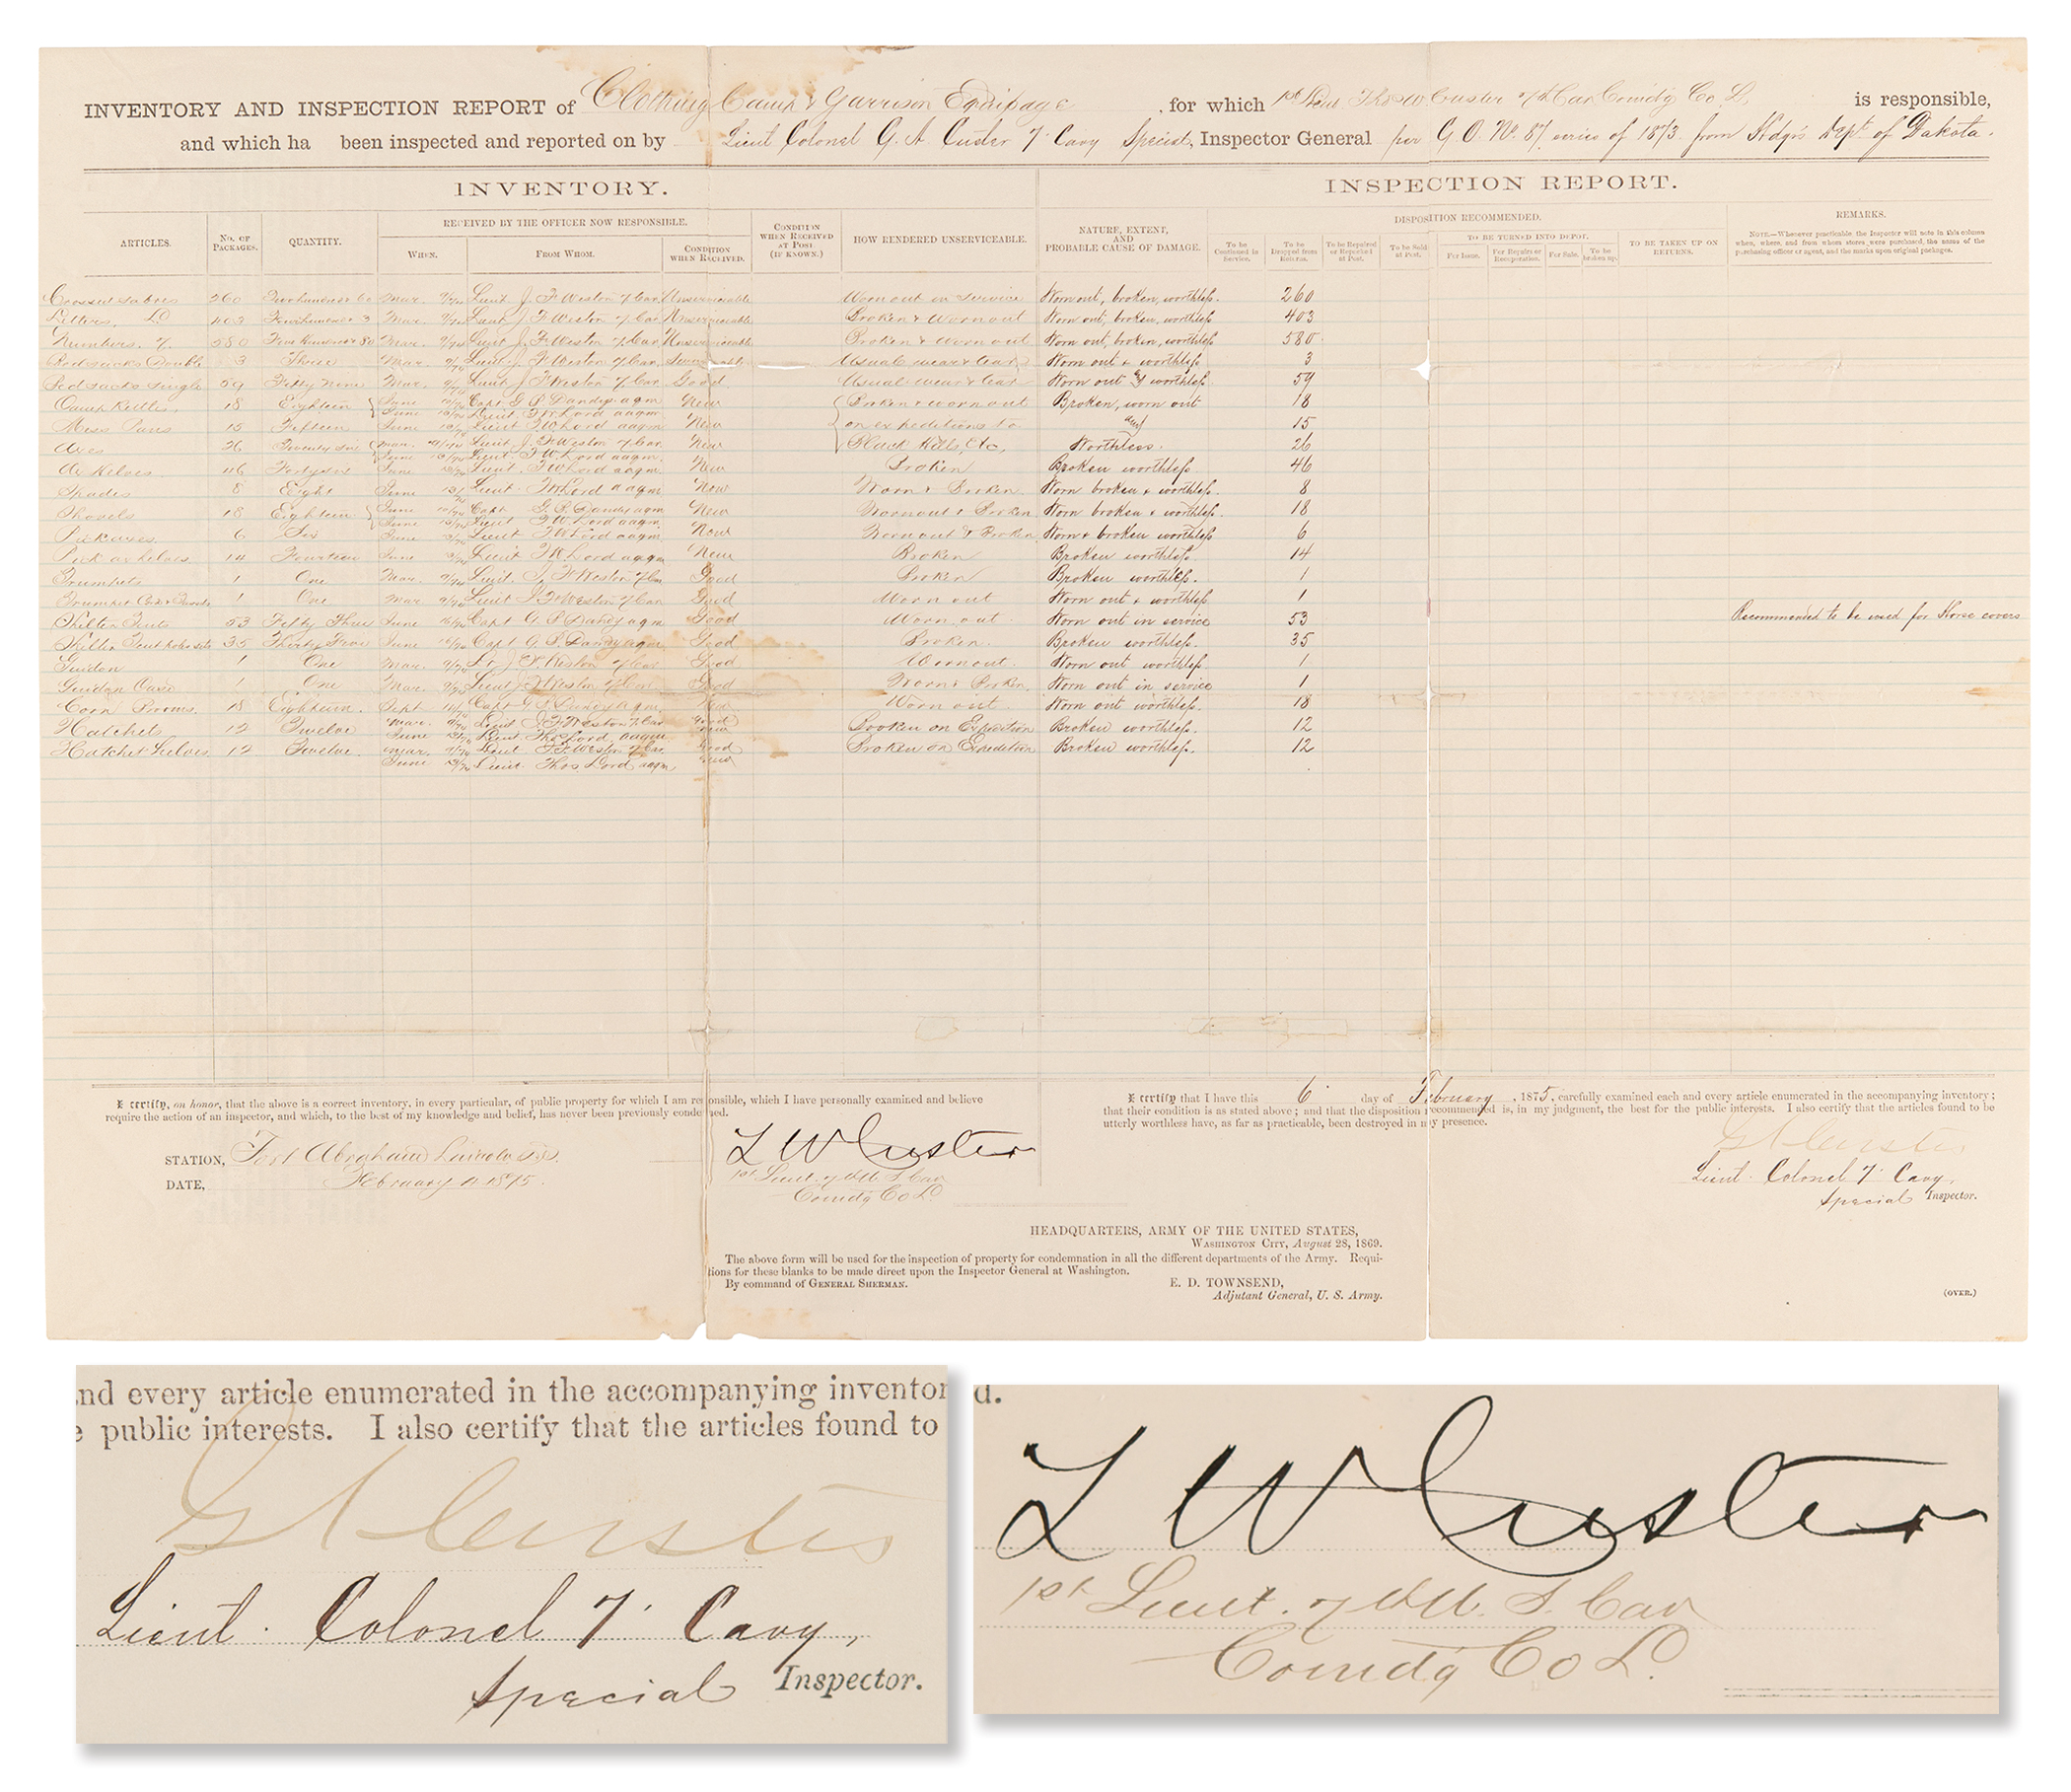 INVENTORY AND INSPECTION REPORT of Clothing Camp & Garrison Equipage, for which 1st Lieut Thos W Custer 7th Cav Comdg Co L is responsible,
and which ha been inspected and reported on by Lieut Colonel G. A. Custer 7 Cavy Special, Inspector General per G.O. No. 87 series of 1873 from Hdqrs Dept of Dakota.
INVENTORY. INSPECTION REPORT.
ARTICLES. No. of Packages. QUANTITY. RECEIVED BY THE OFFICER NOW RESPONSIBLE. When. From Whom. Condition when Received. Condition when Received at Post. (If known.) HOW RENDERED UNSERVICEABLE. NATURE, EXTENT, AND PROBABLE CAUSE OF DAMAGE. DISPOSITION RECOMMENDED. To be Continued in Service. To be Dropped from Returns. To be Repaired or Reported at Post. To be Sold at Post. TO BE TURNED INTO DEPOT. For Issue. For Repairs or Recuperation. For Sale. To be broken up. TO BE TAKEN UP ON RETURNS. REMARKS.
Note.—Whenever practicable the Inspector will note in this column when, where, and from whom stores were purchased, the name of the purchasing officer or agent, and the marks upon original packages.
Crossed sabres 260 Two hundred & 60 Mar. Lieut J. F. Weston 7 Cav. Unserviceable Worn out in service Worn out, broken, worthless. 260
Letters, L 403 Four hundred & 3 Mar. Lieut J. F. Weston 7 Cav. Unserviceable Broken & Worn out Worn out, broken, worthless. 403
Numbers. 7. 580 Five hundred & 80 Mar. Lieut J. F. Weston 7 Cav. Unserviceable Broken & Worn out Worn out, broken, worthless. 580
Bedsacks Double 3 Three Mar. Lieut. J. F. Weston 7 Cav. Usual wear & tear Worn out & worthless 3
Bedsacks Single 59 Fifty Nine Mar. Lieut J. F. Weston 7 Cav. Good Usual wear & tear Worn out & worthless 59
Camp Kettles. 18 Eighteen June Capt G P Dandy aqm New Broken & worn out Broken, worn out 18
June Lieut. T. W. Lord aaqm
Mess Pans 15 Fifteen June Lieut T. W. Lord aaqm. New on expeditions to and 15
Axes 26 Twenty six Mar. Lieut J. F. Weston 7 Cav. New Black Hills, Etc, Worthless. 26
June Lieut T. W. Lord aaqm.
Ax helves. 46 Forty six June Lieut. T. W. Lord aaqm. New Broken Broken worthless 46
Spades 8 Eight June Lieut. T. W. Lord aaqm New Worn & Broken Worn broken & worthless. 8
Shovels 18 Eighteen June Capt G. P. Dandy aqm New Worn out & Broken Worn broken & worthless. 18
June Lieut T. W. Lord aaqm.
Pickaxes. 6 Six June Lieut T. W. Lord aaqm New Worn out & Broken Worn & broken worthless 6
Pick ax helves. 14 Fourteen June Lieut T. W. Lord aaqm New Broken Broken worthless 14
Trumpets 1 One Mar. Lieut. J. F. Weston 7 Cav Good Broken Broken worthless. 1
Trumpet Cord & Tassels 1 One Mar Lieut J. F. Weston 7 Cav Good Worn out Worn out & worthless 1
Shelter Tents 53 Fifty Three June Capt G. P. Dandy aqm Good Worn out. Worn out in service 53 Recommended to be used for Horse covers
Shelter Tent poles sets 35 Thirty Five June Capt G. P. Dandy aqm Good Broken. Broken worthless. 35
Guidon 1 One Mar. Lt J. F. Weston 7 Cav Good Worn out. Worn out worthless. 1
Guidon Case 1 One Mar. Lieut J. F. Weston 7 Cav Good Worn & Broken. Worn out in service 1
Corn Brooms. 18 Eighteen. Sept Capt G. P. Dandy aqm. New Worn out. Worn out worthless. 18
Hatchets 12 Twelve Mar. Lieut J. F. Weston 7 Cav Good Broken on Expedition Broken worthless. 12
June Lieut Thos Lord. aaqm New
Hatchet Helves 12 Twelve. Mar. Lieut J. F. Weston 7 Cav Good Broken on Expedition Broken worthless. 12
June Lieut. Thos Lord aaqm.
I certify, on honor, that the above is a correct inventory, in every particular, of public property for which I am responsible, which I have personally examined and believe
require the action of an inspector, and which, to the best of my knowledge and belief, has never been previously condemned.
STATION, Fort Abraham Lincoln D.T.
DATE, February 1875.
T W Custer
1st Lieut. 7th U. S. Cav
Comdg Co L.
I certify that I have this 6 day of February, 1875, carefully examined each and every article enumerated in the accompanying inventory;
that their condition is as stated above; and that the disposition recommended is, in my judgment, the best for the public interests. I also certify that the articles found to be
utterly worthless have, as far as practicable, been destroyed in my presence.
G A Custer
Lieut. Colonel 7 Cavy,
Special Inspector.
HEADQUARTERS, ARMY OF THE UNITED STATES,
Washington City, August 28, 1869.
The above form will be used for the inspection of property for condemnation in all the different departments of the Army. Requi-
tions for these blanks to be made direct upon the Inspector General at Washington.
By command of General Sherman.
E. D. TOWNSEND,
Adjutant General, U. S. Army.
(OVER.)
nd every article enumerated in the accompanying inventor
e public interests. I also certify that the articles found to
G A Custer
Lieut. Colonel 7 Cavy,
Special Inspector.
d.
T W Custer
1st Lieut. 7th U. S. Cav
Comdg Co L.